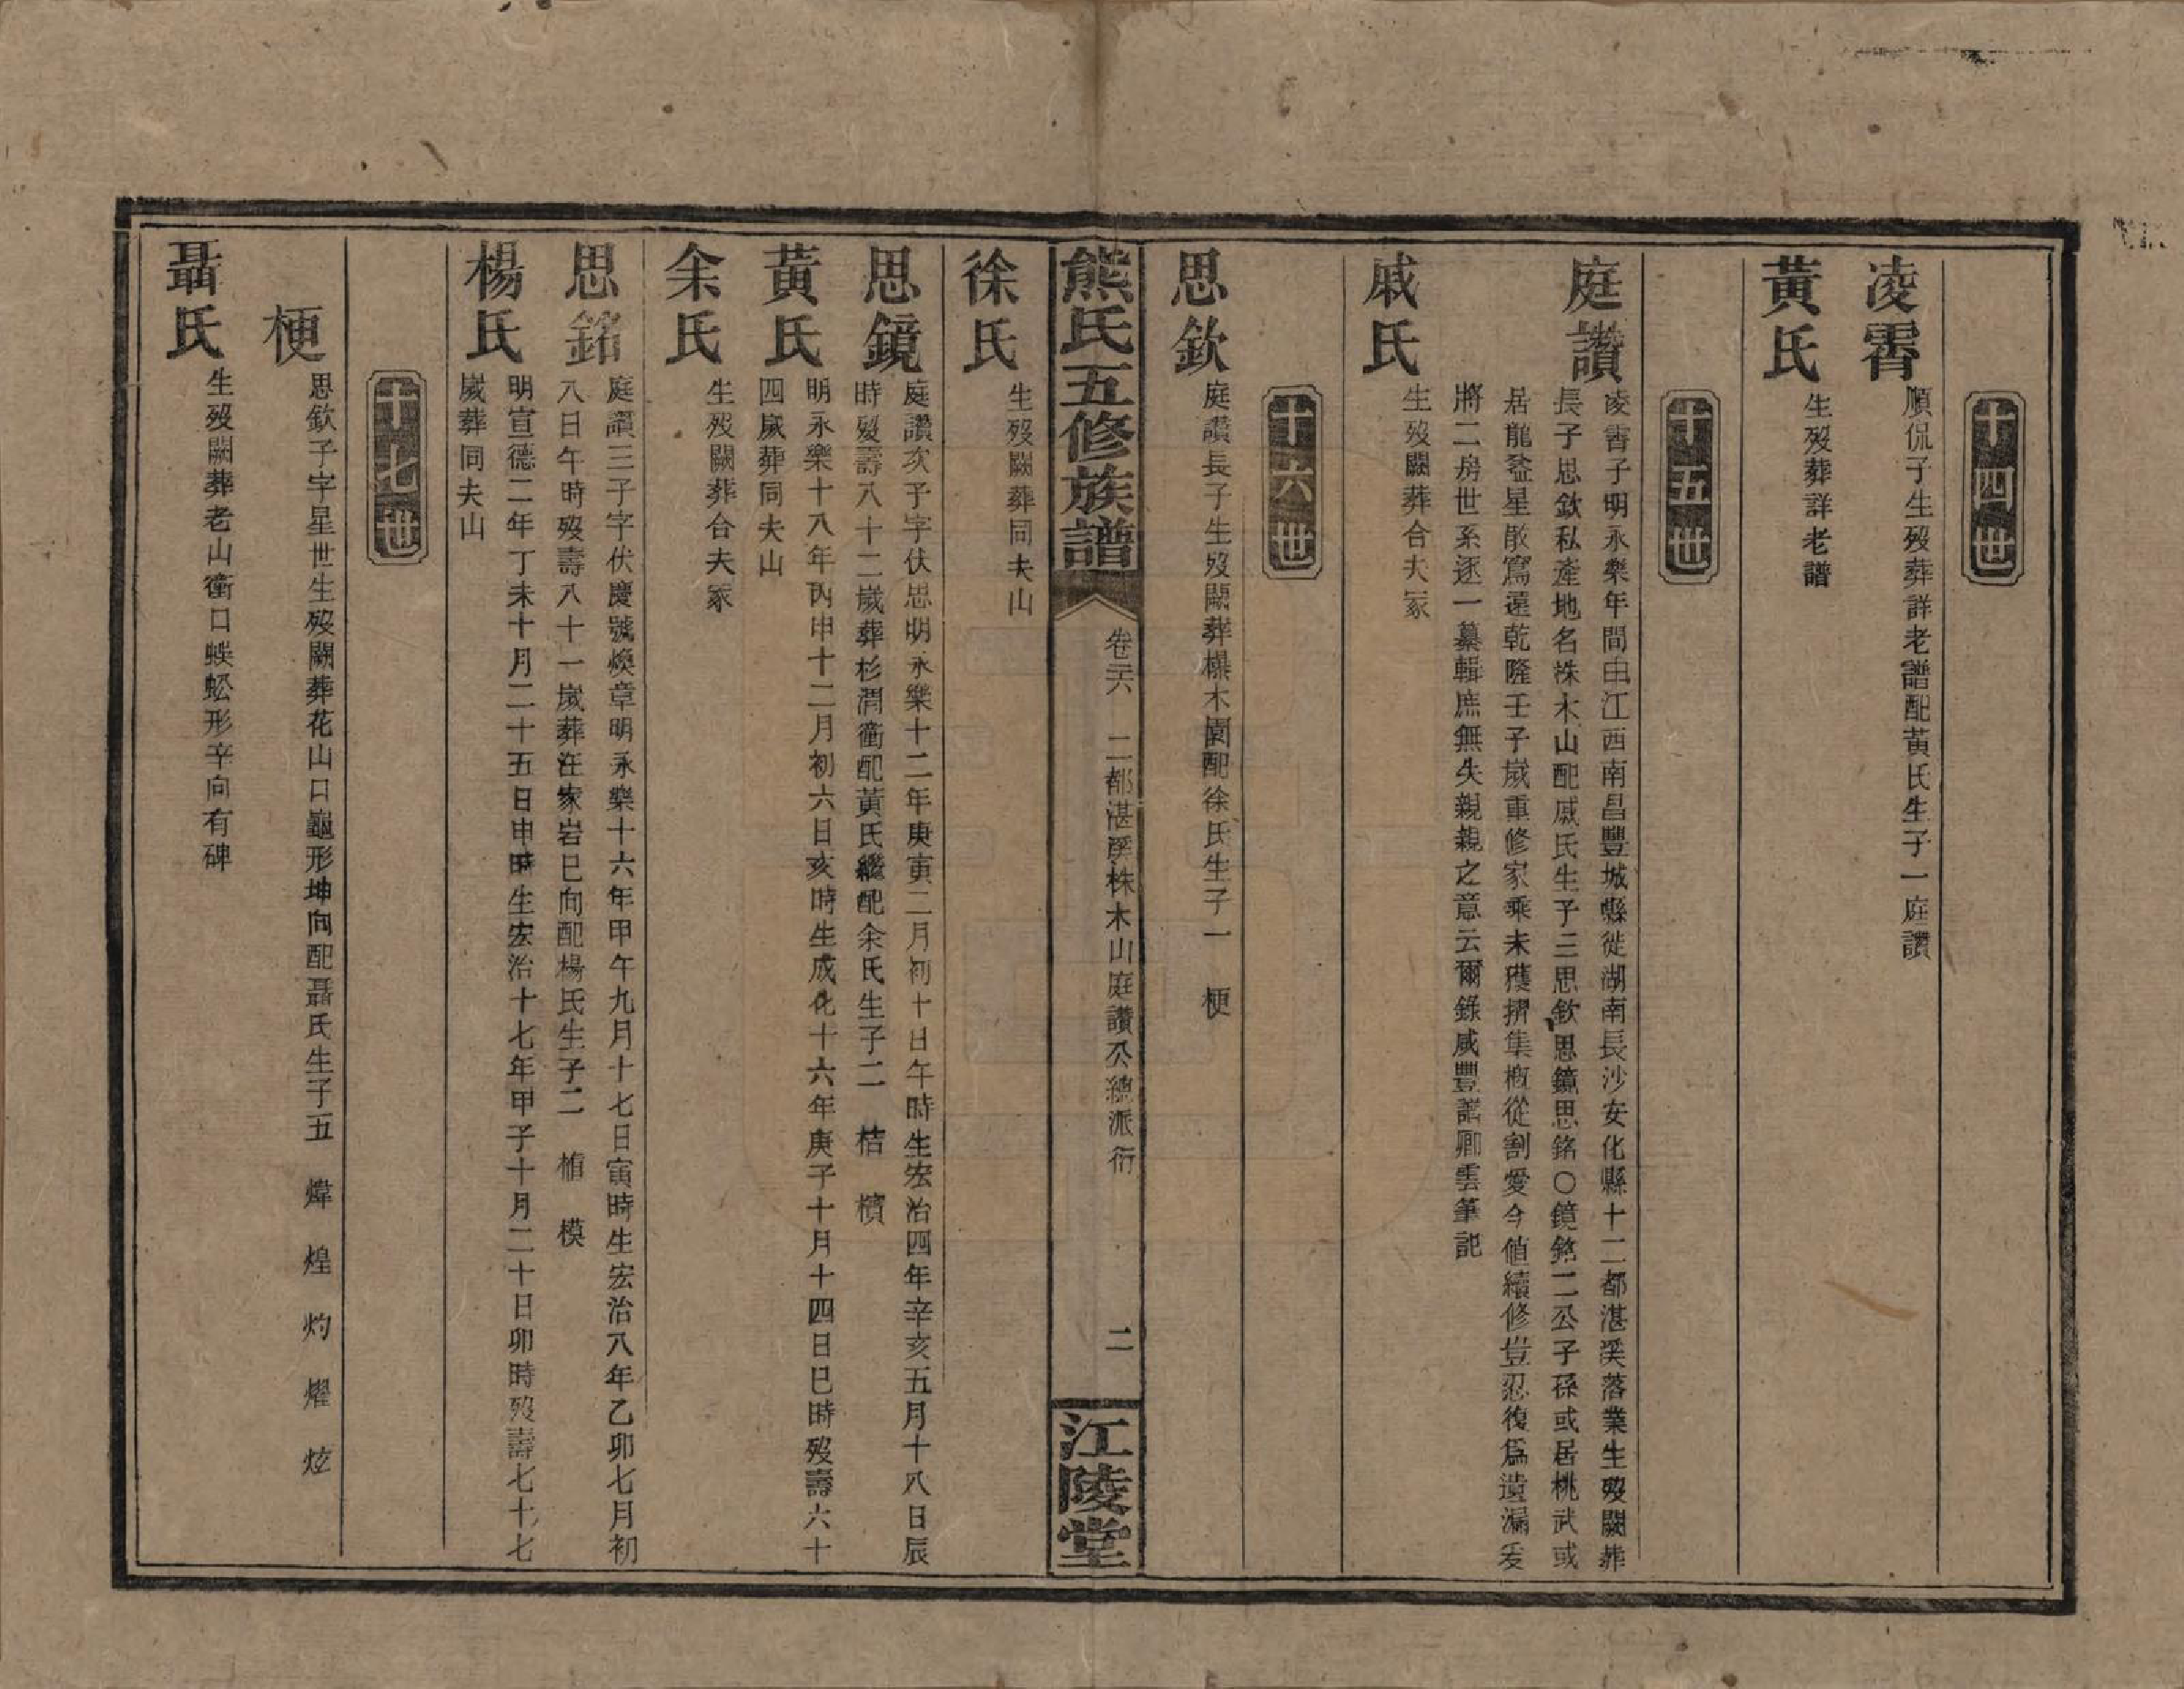 十四世
凌霄
順侃子生歿葬詳老譜配黃氏生子一庭讚
黃氏
生歿葬詳老譜
十五世
庭讚
凌霄子明永樂年間由江西南昌豐城縣徙湖南長沙安化縣十二都湛溪落業生歿闕葬
長子思欽私產地名株木山配戚氏生子三思欽思鏡思銘○鏡銘二公子孫或居桃武或
居龍益星散寫遠乾隆壬子歲重修家乘未獲擠集概從割愛今値續修豈忍復爲遺漏爰
將二房世系逐一纂輯庶無失親親之意云爾錄咸豐譜卿雲筆記
戚氏
生歿闕葬合夫冢
十六世
思欽
庭讚長子生歿闕葬櫐木園配徐氏生子一 梗
熊氏五修族譜
卷六 二都湛溪株木山庭讚公總派衍
二
江陵堂
徐氏
生歿闕葬同夫山
思鏡
庭讚次子字伏思明永樂十二年庚寅二月初十日午時生宏治四年辛亥五月十八日辰
時歿壽八十二歲葬杉渭衝配黃氏繼配余氏生子二 桔 檳
黃氏
明永樂十八年丙申十二月初六日亥時生成化十六年庚子十月十四日巳時歿壽六十
四歲葬同夫山
余氏
生歿闕葬合夫冢
思銘
庭讚三子字伏慶號煥章明永樂十六年甲午九月十七日寅時生宏治八年乙卯七月初
八日午時歿壽八十一歲葬汪家岩巳向配楊氏生子二 楦 模
楊氏
明宣德二年丁未十月二十五日申時生宏治十七年甲子十月二十日卯時歿壽七十七
歲葬同夫山
十七世
梗
思欽子字星世生歿闕葬花山口龜形坤向配聶氏生子五 煒 煌 灼 燿 炫
聶氏
生歿闕葬老山衝口蜈蚣形辛向有碑